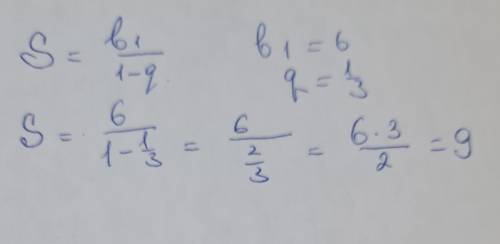 S = b₁/(1-q) b₁ = 6
q = 1/3
S = 6/(1-1/3) = 6/(2/3) = (6·3)/2 = 9